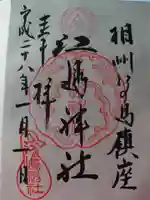 相州江の島鎮座
江島神社
奉拝
平成二十八年一月一日